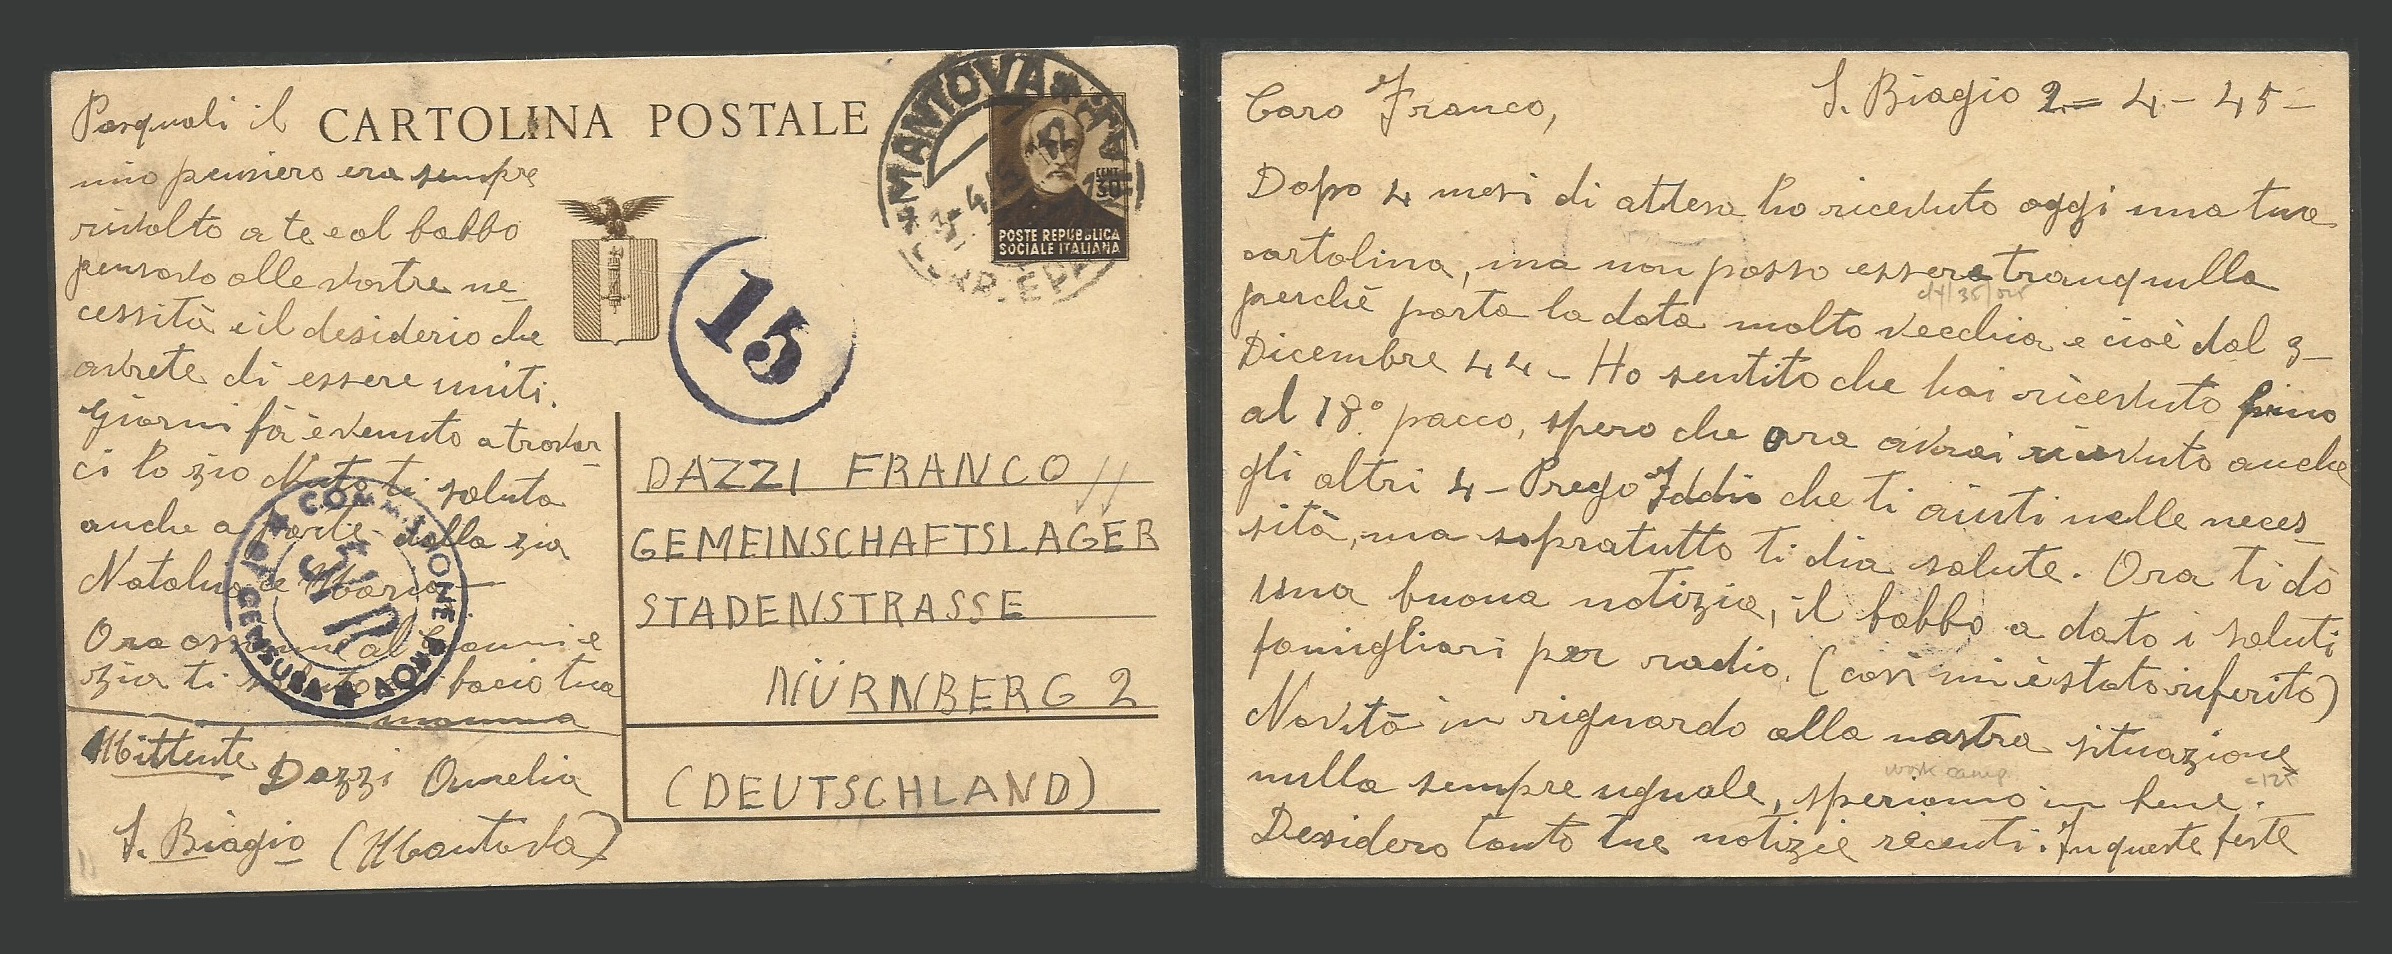 CARTOLINA POSTALE
Pasquali il
mio pensiero era sempre
rivolto a te e al babbo
pensavo alle vostre ne-
cessità e il desiderio che
avrete di essere uniti.
Giorni fà è venuto a trovar-
ci lo zio Nuto ti saluta
anche a parte della zia
Natalina e Maria -
Ora
zia ti saluto bacio tua
mamma
Mittente Dazzi Aurelia
S. Biagio (Mantova)
MANTOVA
CENT 30
POSTE REPUBBLICA
SOCIALE ITALIANA
15
COMMISSIONE PROV
CENSURA
DAZZI FRANCO
GEMEINSCHAFTSLAGER
STADENSTRASSE
NÜRNBERG 2
(DEUTSCHLAND)
Caro Franco, S. Biagio 2 - 4 - 45 -
Dopo 4 mesi di attesa ho ricevuto oggi una tua
cartolina, ma non posso essere tranquilla
perchè porta la data molto vecchia e cioè dal 3 -
Dicembre 44 - Ho sentito che hai ricevuto fino
al 18° pacco, spero che ora avrai ricevuto anche
gli altri 4 - Prego Iddio che ti aiuti nelle neces-
sità, ma sopratutto ti dia salute. Ora ti dò
una buona notizia, il babbo a dato i saluti
famigliari per radio. (così mi è stato riferito)
Novità in riguardo alla nostra situazione
work camp
nulla sempre uguale, speriamo in bene.
Desidero tanto tue notizie recenti. In queste feste